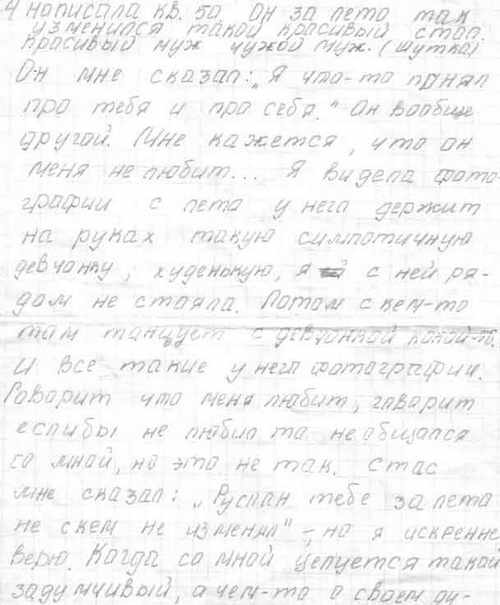 Я написала кв. 50. Он за лето так
изменился такой красивый стал.
Красивый муж чужой муж. (шутка)
Он мне сказал: „Я что-то понял
про тебя и про себя." Он вообще
другой. Мне кажется, что он
меня не любит... Я видела фото-
графии с лета у него держит
на руках такую симпотичную
девчонку, худенькую, я с ней ря-
дом не стояла. Потом с кем-то
там танцует с девчонкой какой-то.
И все такие у него фотографии.
Говорит что меня любит, говорит
еслибы не любил то необщался
со мной, но это не так. Стас
мне сказал: „Руслан тебе за лето
не скем не изменял" – но я искренне
верю. Когда со мной целуется такой
задумчивый, а чем-то о своем ду-